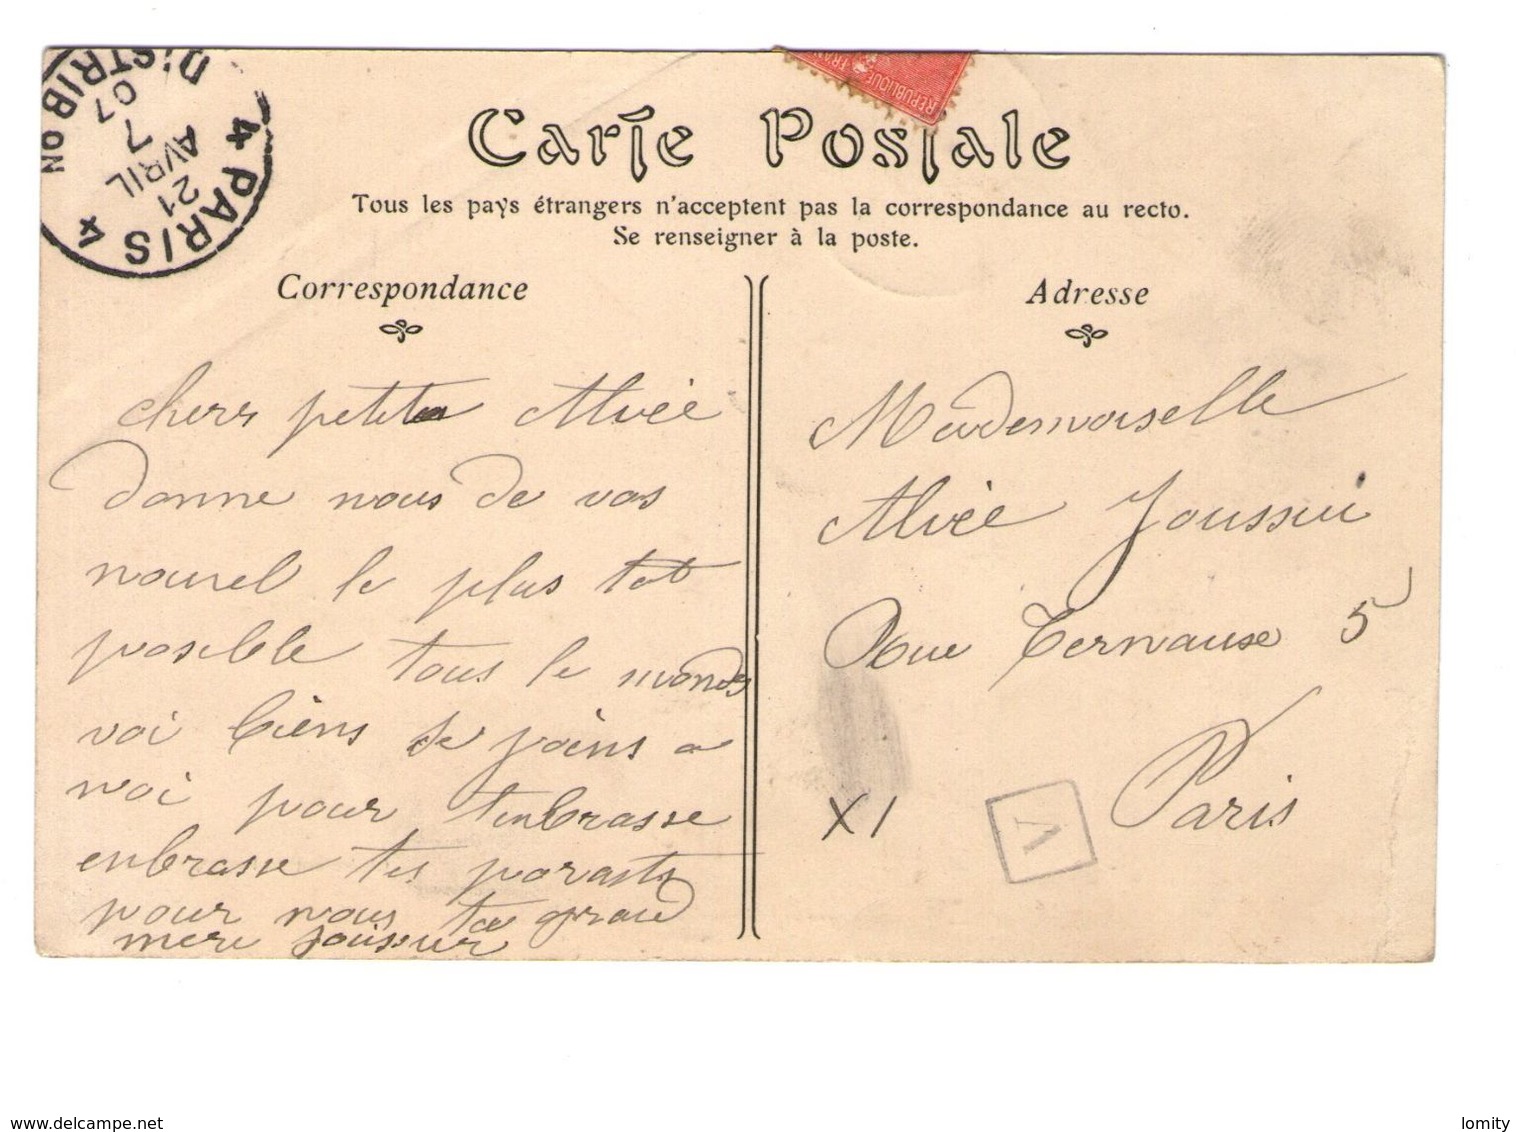 4 PARIS 4
DISTRIBON
21
AVRIL
7
07
REPUBLIQUE FRAN
Carte Postale
Tous les pays étrangers n'acceptent pas la correspondance au recto.
Se renseigner à la poste.
Correspondance
Adresse
chers petite Alice
donne nous de vos
nouvel le plus tot
posible tous le monds
voi biens se joins a
moi pour tenbrasse
enbrasse tes parants
pour nous ta grand
mere
Mademoiselle
Alice
Rue Ternause 5
Paris
X1
A
www.delcampe.net
lomity